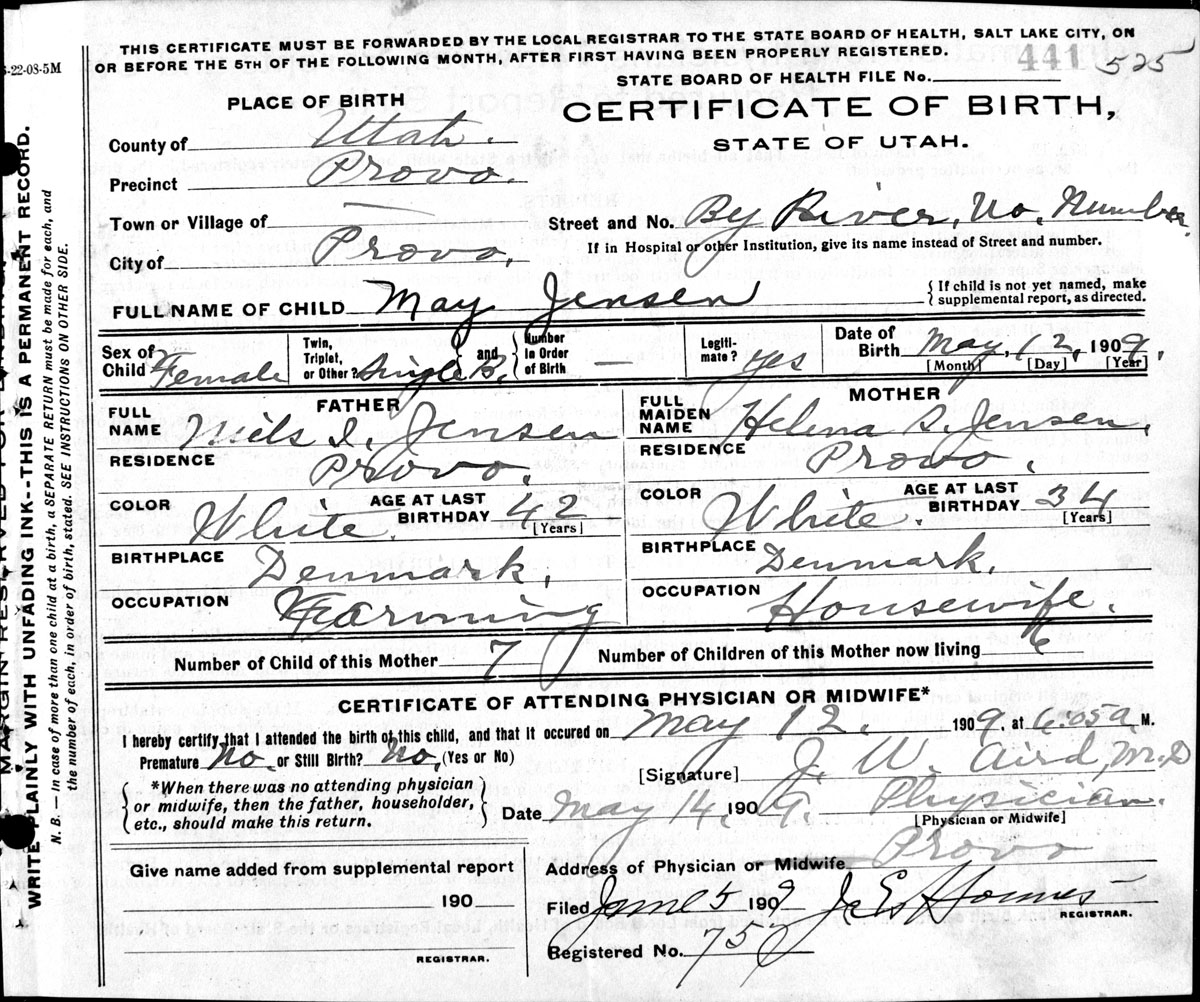 THIS CERTIFICATE MUST BE FORWARDED BY THE LOCAL REGISTRAR TO THE STATE BOARD OF HEALTH, SALT LAKE CITY, ON
OR BEFORE THE 5TH OF THE FOLLOWING MONTH, AFTER FIRST HAVING BEEN PROPERLY REGISTERED.
-22-08-5M
441 525
STATE BOARD OF HEALTH FILE No.
PLACE OF BIRTH
CERTIFICATE OF BIRTH,
STATE OF UTAH.
County of Utah.
Precinct Provo.
Town or Village of —
Street and No. By River, No. Number.
If in Hospital or other Institution, give its name instead of Street and number.
City of Provo.
FULL NAME OF CHILD May Jensen
{ If child is not yet named, make
supplemental report, as directed.
Sex of Child Female
Twin, Triplet, or Other? Single B. { and } Number in Order of Birth —
Legiti- mate? yes
Date of Birth May, 12, 1909.
[Month] [Day] [Year]
FATHER
FULL NAME Niels I. Jensen
RESIDENCE Provo.
COLOR White. AGE AT LAST BIRTHDAY 42
[Years]
BIRTHPLACE Denmark.
OCCUPATION Farming
MOTHER
FULL MAIDEN NAME Helena S. Jensen.
RESIDENCE Provo.
COLOR White. AGE AT LAST BIRTHDAY 34
[Years]
BIRTHPLACE Denmark.
OCCUPATION Housewife.
Number of Child of this Mother 7
Number of Children of this Mother now living 6
CERTIFICATE OF ATTENDING PHYSICIAN OR MIDWIFE*
I hereby certify that I attended the birth of this child, and that it occured on May 12. 1909. at 6.05 a M.
Premature No. or Still Birth? No, (Yes or No)
[Signature] J. W. Aird, M.D
{ *When there was no attending physician
or midwife, then the father, householder,
etc., should make this return. }
Date May 14. 1909. Physician.
[Physician or Midwife]
Address of Physician or Midwife Provo
Give name added from supplemental report
190
REGISTRAR.
Filed June 5 1909 J. E. Homes
REGISTRAR.
Registered No. 757
MARGIN RESERVED FOR
WRITE PLAINLY WITH UNFADING INK--THIS IS A PERMANENT RECORD.
N. B. — In case of more than one child at a birth, a SEPARATE RETURN must be made for each, and
the number of each, in order of birth, stated. SEE INSTRUCTIONS ON OTHER SIDE.